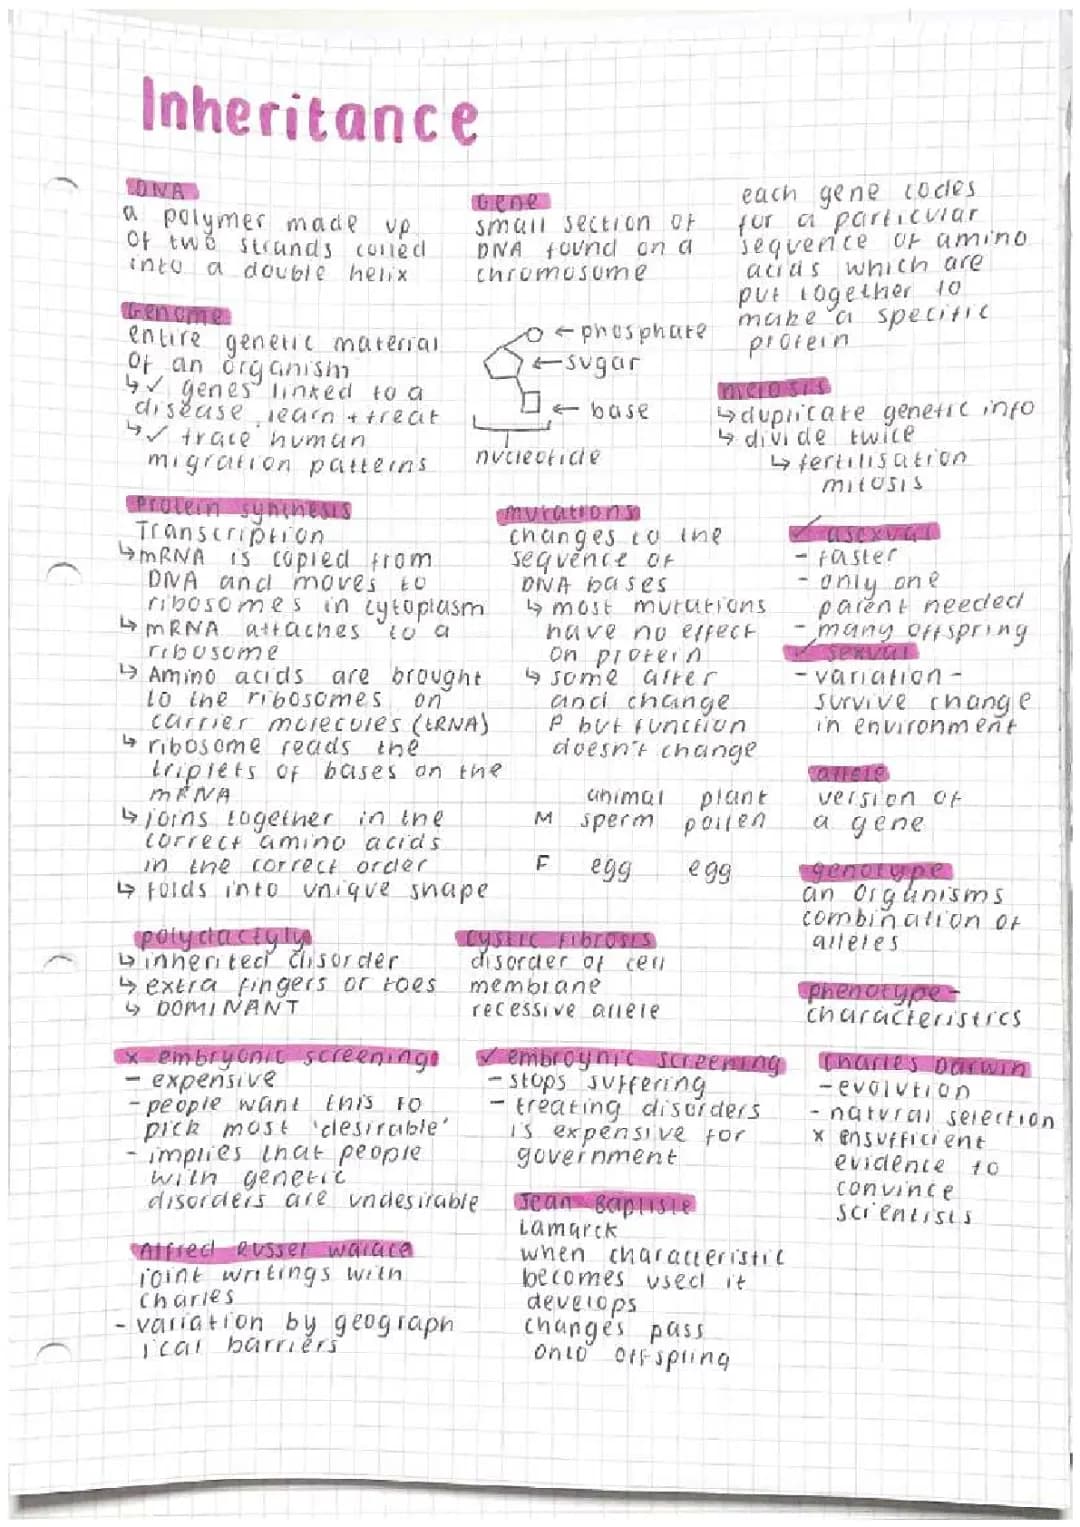 Inheritance
DNA
a polymer made up
of two strands coiled
into a double helix
Gene
small section of
DNA found on a
chromosome
each gene codes
for a particular
sequence of amino
acids which are
put together to
make a specific
protein
Genome
entire genetic material
of an organism
↳✓ genes linked to a
disease learn + treat
↳✓ trace human
migration patterns
← phosphate
← sugar
← base
nucleotide
meiosis
↳ duplicate genetic info
↳ divide twice
↳ fertilisation
mitosis
Protein synthesis
Transcription
↳ mRNA is copied from
DNA and moves to
ribosomes in cytoplasm
↳ mRNA attaches to a
ribosome
↳ Amino acids are brought
to the ribosomes on
carrier molecules (tRNA)
↳ ribosome reads the
triplets of bases on the
mRNA
↳ joins together in the
correct amino acids
in the correct order
↳ folds into unique shape
mutations
changes to the
sequence of
DNA bases
↳ most mutations
have no effect
on protein
↳ some alter
and change
P but function
doesn't change
✓ asexual
- faster
- only one
parent needed
- many offspring
✓ sexual
- variation -
survive change
in environment
animal plant
M sperm pollen
F egg egg
allele
version of
a gene
genotype
an organisms
combination of
alleles
phenotype -
characteristics
polydactyly
↳ inherited disorder
↳ extra fingers or toes
↳ DOMINANT
cystic fibrosis
disorder of cell
membrane
recessive allele
x embryonic screening
- expensive
- people want this to
pick most 'desirable'
- implies that people
with genetic
disorders are undesirable
✓ embroynic screening
- stops suffering
- treating disorders
is expensive for
government
Charles Darwin
- evolution
- natural selection
x ensufficient
evidence to
convince
scientists
Alfred Russel Walace
joint writings with
Charles
- variation by geograph
ical barriers
Jean Baptiste
Lamarck
when characteristic
becomes used it
develops
changes pass
onto offspring